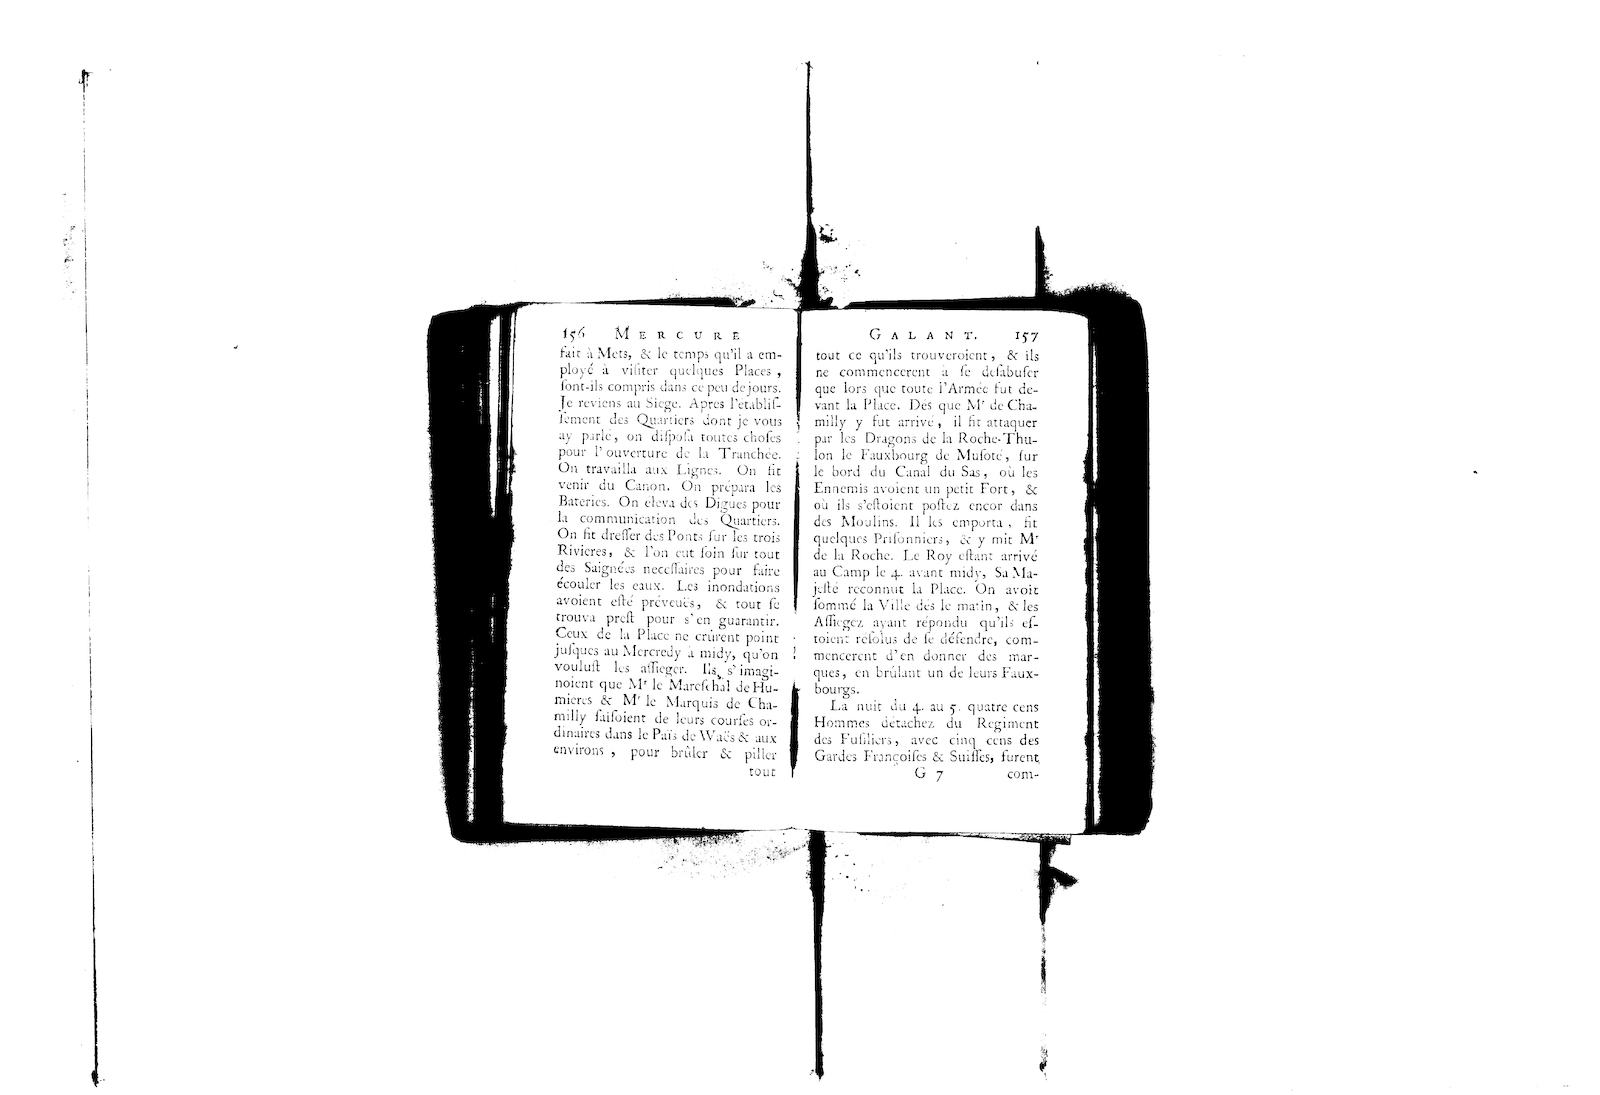 156 MERCURE
fait à Mets, & le temps qu'il a em-
ployé à viſiter quelques Places,
ſont-ils compris dans ce peu de jours.
Je reviens au Siege. Apres l'établiſ-
ſement des Quartiers dont je vous
ay parlé, on diſpoſa toutes choſes
pour l'ouverture de la Tranchée.
On travailla aux Lignes. On fit
venir du Canon. On prépara les
Bateries. On eleva des Digues pour
la communication des Quartiers.
On fit dreſſer des Ponts ſur les trois
Rivieres, & l'on eut ſoin ſur tout
des Saignées neceſſaires pour faire
écouler les eaux. Les inondations
avoient eſté préveuës, & tout ſe
trouva preſt pour s'en guarantir.
Ceux de la Place ne crûrent point
juſques au Mercredy à midy, qu'on
vouluſt les aſſieger. Ils s'imagi-
noient que Mr le Mareſchal de Hu-
mieres & Mr le Marquis de Cha-
milly faiſoient de leurs courſes or-
dinaires dans le Païs de Waës & aux
environs, pour brûler & piller
tout
GALANT. 157
tout ce qu'ils trouveroient, & ils
ne commencerent à ſe deſabuſer
que lors que toute l'Armée fut de-
vant la Place. Dés que Mr de Cha-
milly y fut arrivé, il fit attaquer
par les Dragons de la Roche-Thu-
lon le Fauxbourg de Muſote, ſur
le bord du Canal du Sas, où les
Ennemis avoient un petit Fort, &
où ils s'eſtoient poſtez encor dans
des Moulins. Il les emporta, fit
quelques Priſonniers, & y mit Mr
de la Roche. Le Roy eſtant arrivé
au Camp le 4. avant midy, Sa Ma-
jeſté reconnut la Place. On avoit
ſommé la Ville dés le matin, & les
Aſſiegez ayant répondu qu'ils eſ-
toient reſolus de ſe défendre, com-
mencerent d'en donner des mar-
ques, en brûlant un de leurs Faux-
bourgs.
La nuit du 4. au 5. quatre cens
Hommes détachez du Regiment
des Fuſiliers, avec cinq cens des
Gardes Françoiſes & Suiſſes, furent
G 7 com-